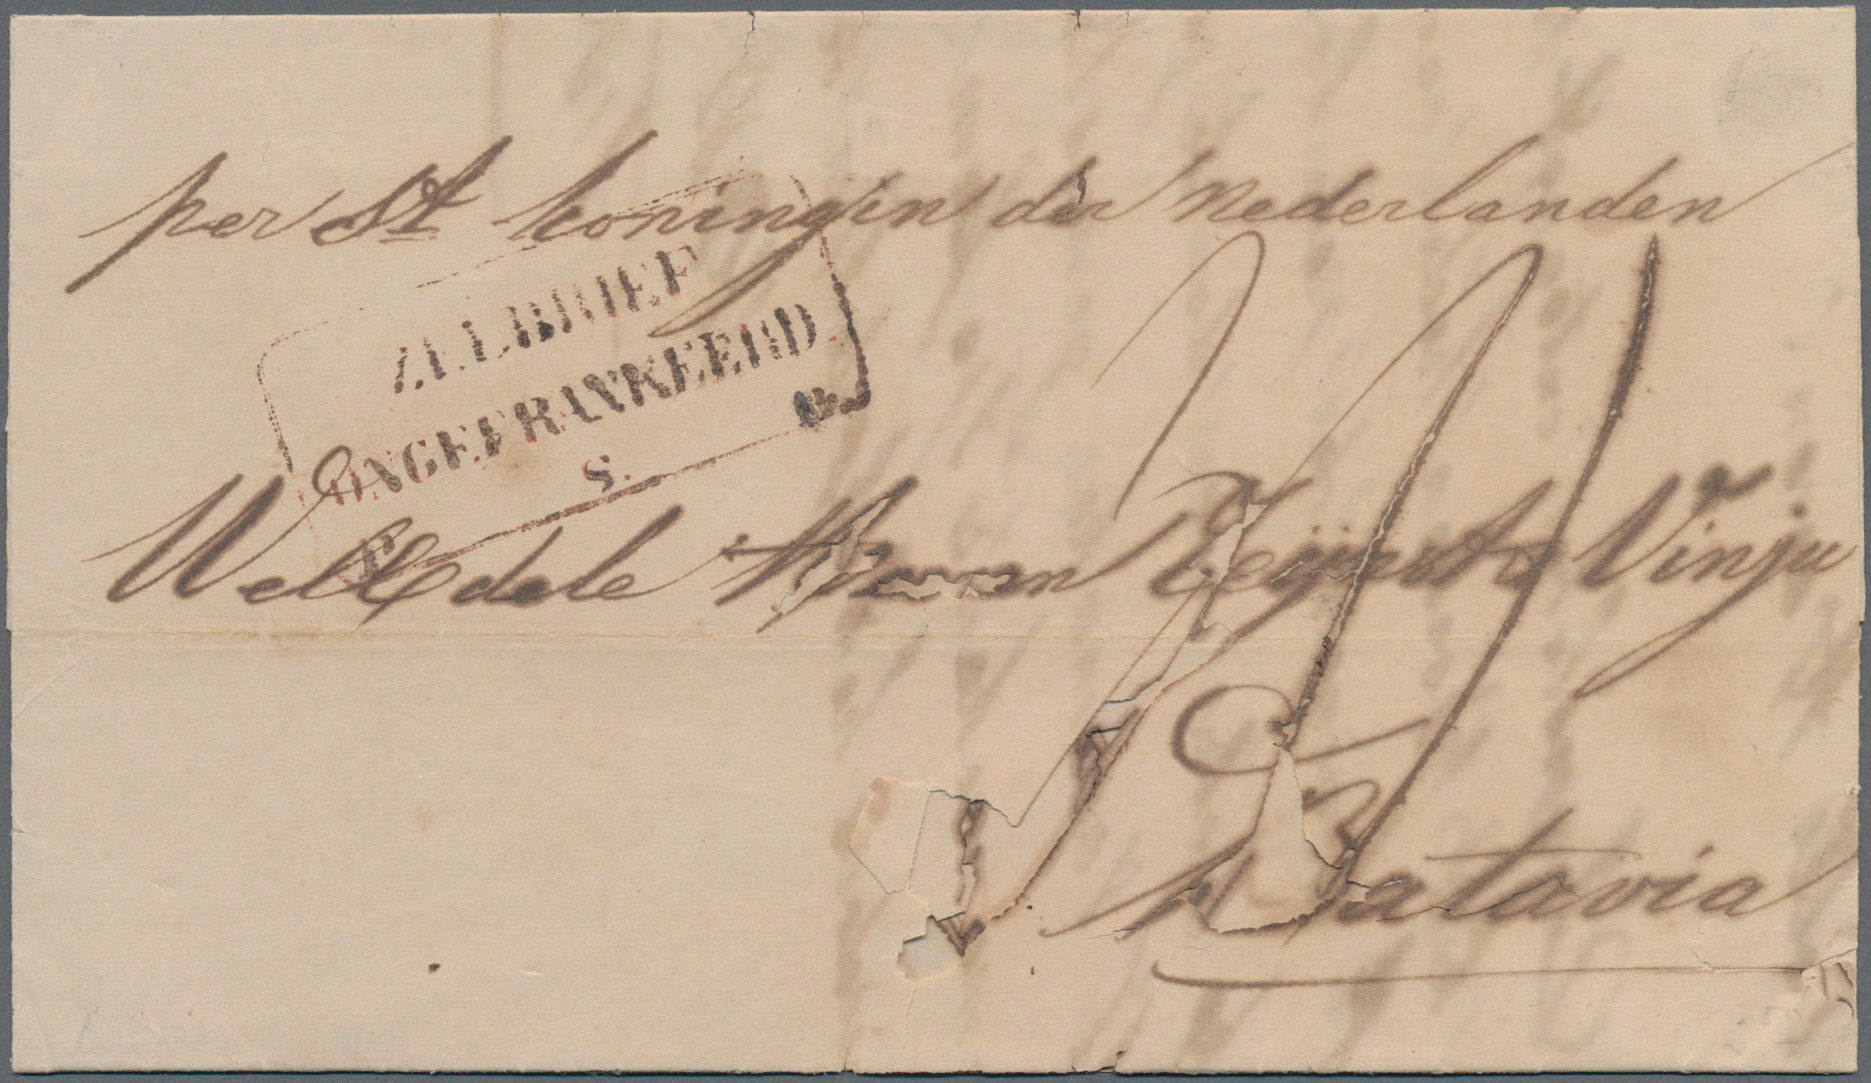 per St. koningin der Nederlanden
ZEEBRIEF
ONGEFRANKEERD
S.
WelEdele
Vinju
Batavia